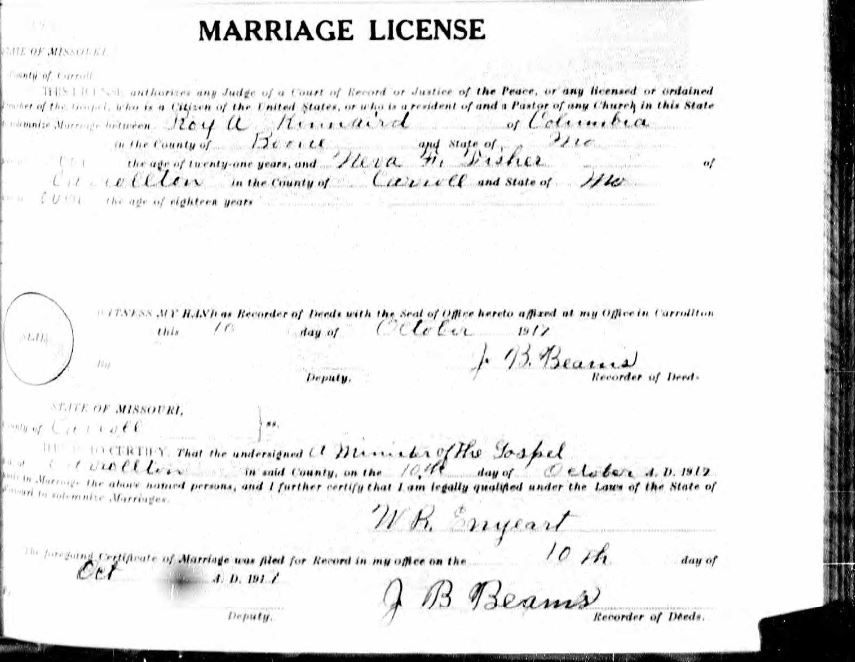 MARRIAGE LICENSE
STATE OF MISSOURI,
County of Carroll
THIS LICENSE authorizes any Judge of a Court of Record or Justice of the Peace, or any licensed or ordained
of the Gospel, who is a Citizen of the United States, or who is a resident of and a Pastor of any Church in this State
solemnize Marriage between Roy A Kinnaird of Columbia
in the County of Boone and State of Mo
the age of twenty-one years, and Neva M. Fisher of
Carrollton in the County of Carroll and State of Mo
over the age of eighteen years
WITNESS MY HAND as Recorder of Deeds with the Seal of Office hereto affixed at my Office in Carrollton
this 10 day of October 1917
SEAL
By J. B. Beams
Deputy. Recorder of Deeds
STATE OF MISSOURI,
County of Carroll ss.
THIS IS TO CERTIFY, That the undersigned A Minister of The Gospel
at Carrollton in said County, on the 10th day of October A. D. 1917
in Marriage the above named persons, and I further certify that I am legally qualified under the Laws of the State of
to solemnize Marriages.
W R. Enyeart
The foregoing Certificate of Marriage was filed for Record in my office on the 10th day of
Oct A. D. 191
J B Beams
Deputy. Recorder of Deeds.